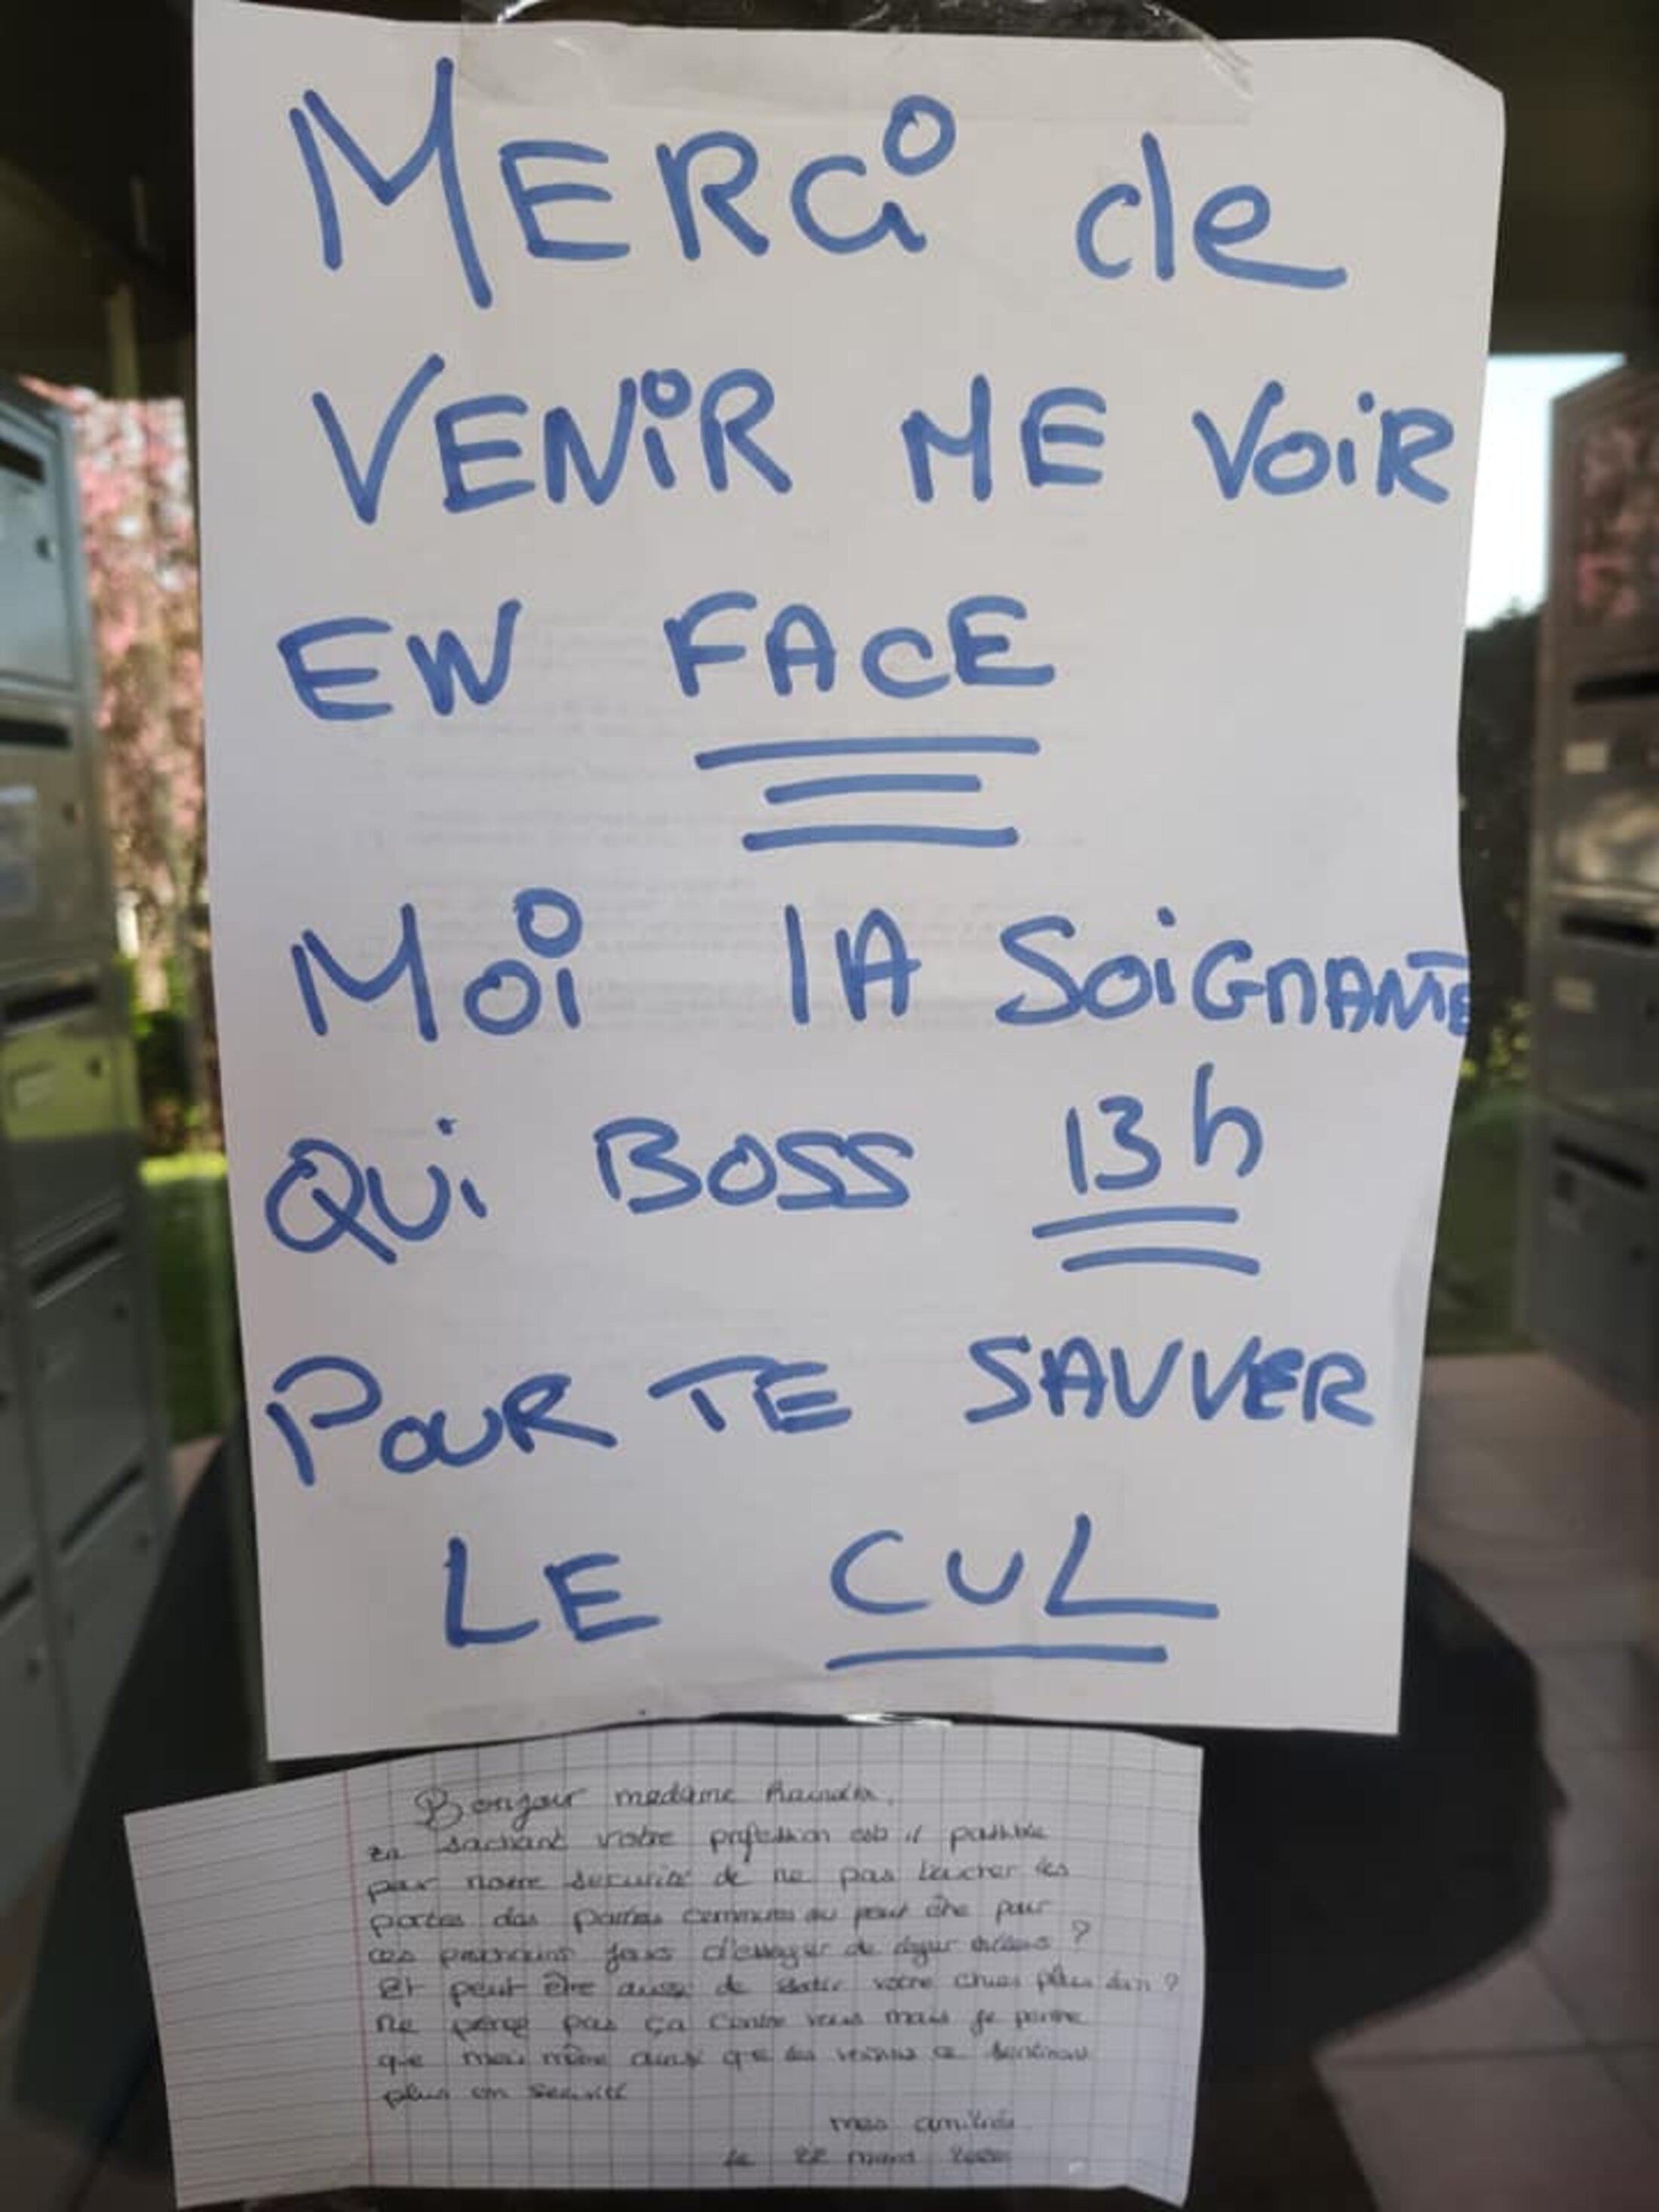 MERCi de
VENiR ME VOiR
EN FACE
MOi lA SOiGnANTE
QUi BOSS 13h
POUR TE SAUVER
LE CUL
Bonjour madame
En sachant votre profession est il possible
pour notre securité de ne pas toucher les
portes des parties communes ou peut être pour
ces prochains jours d'essayer de loger ailleurs ?
Et peut être aussi de sortir votre chien plus loin ?
Ne prenez pas ça contre vous mais je pense
que moi même ainsi que les voisins se sentirons
plus en securité
mes amitiés
le 22 mars 2020